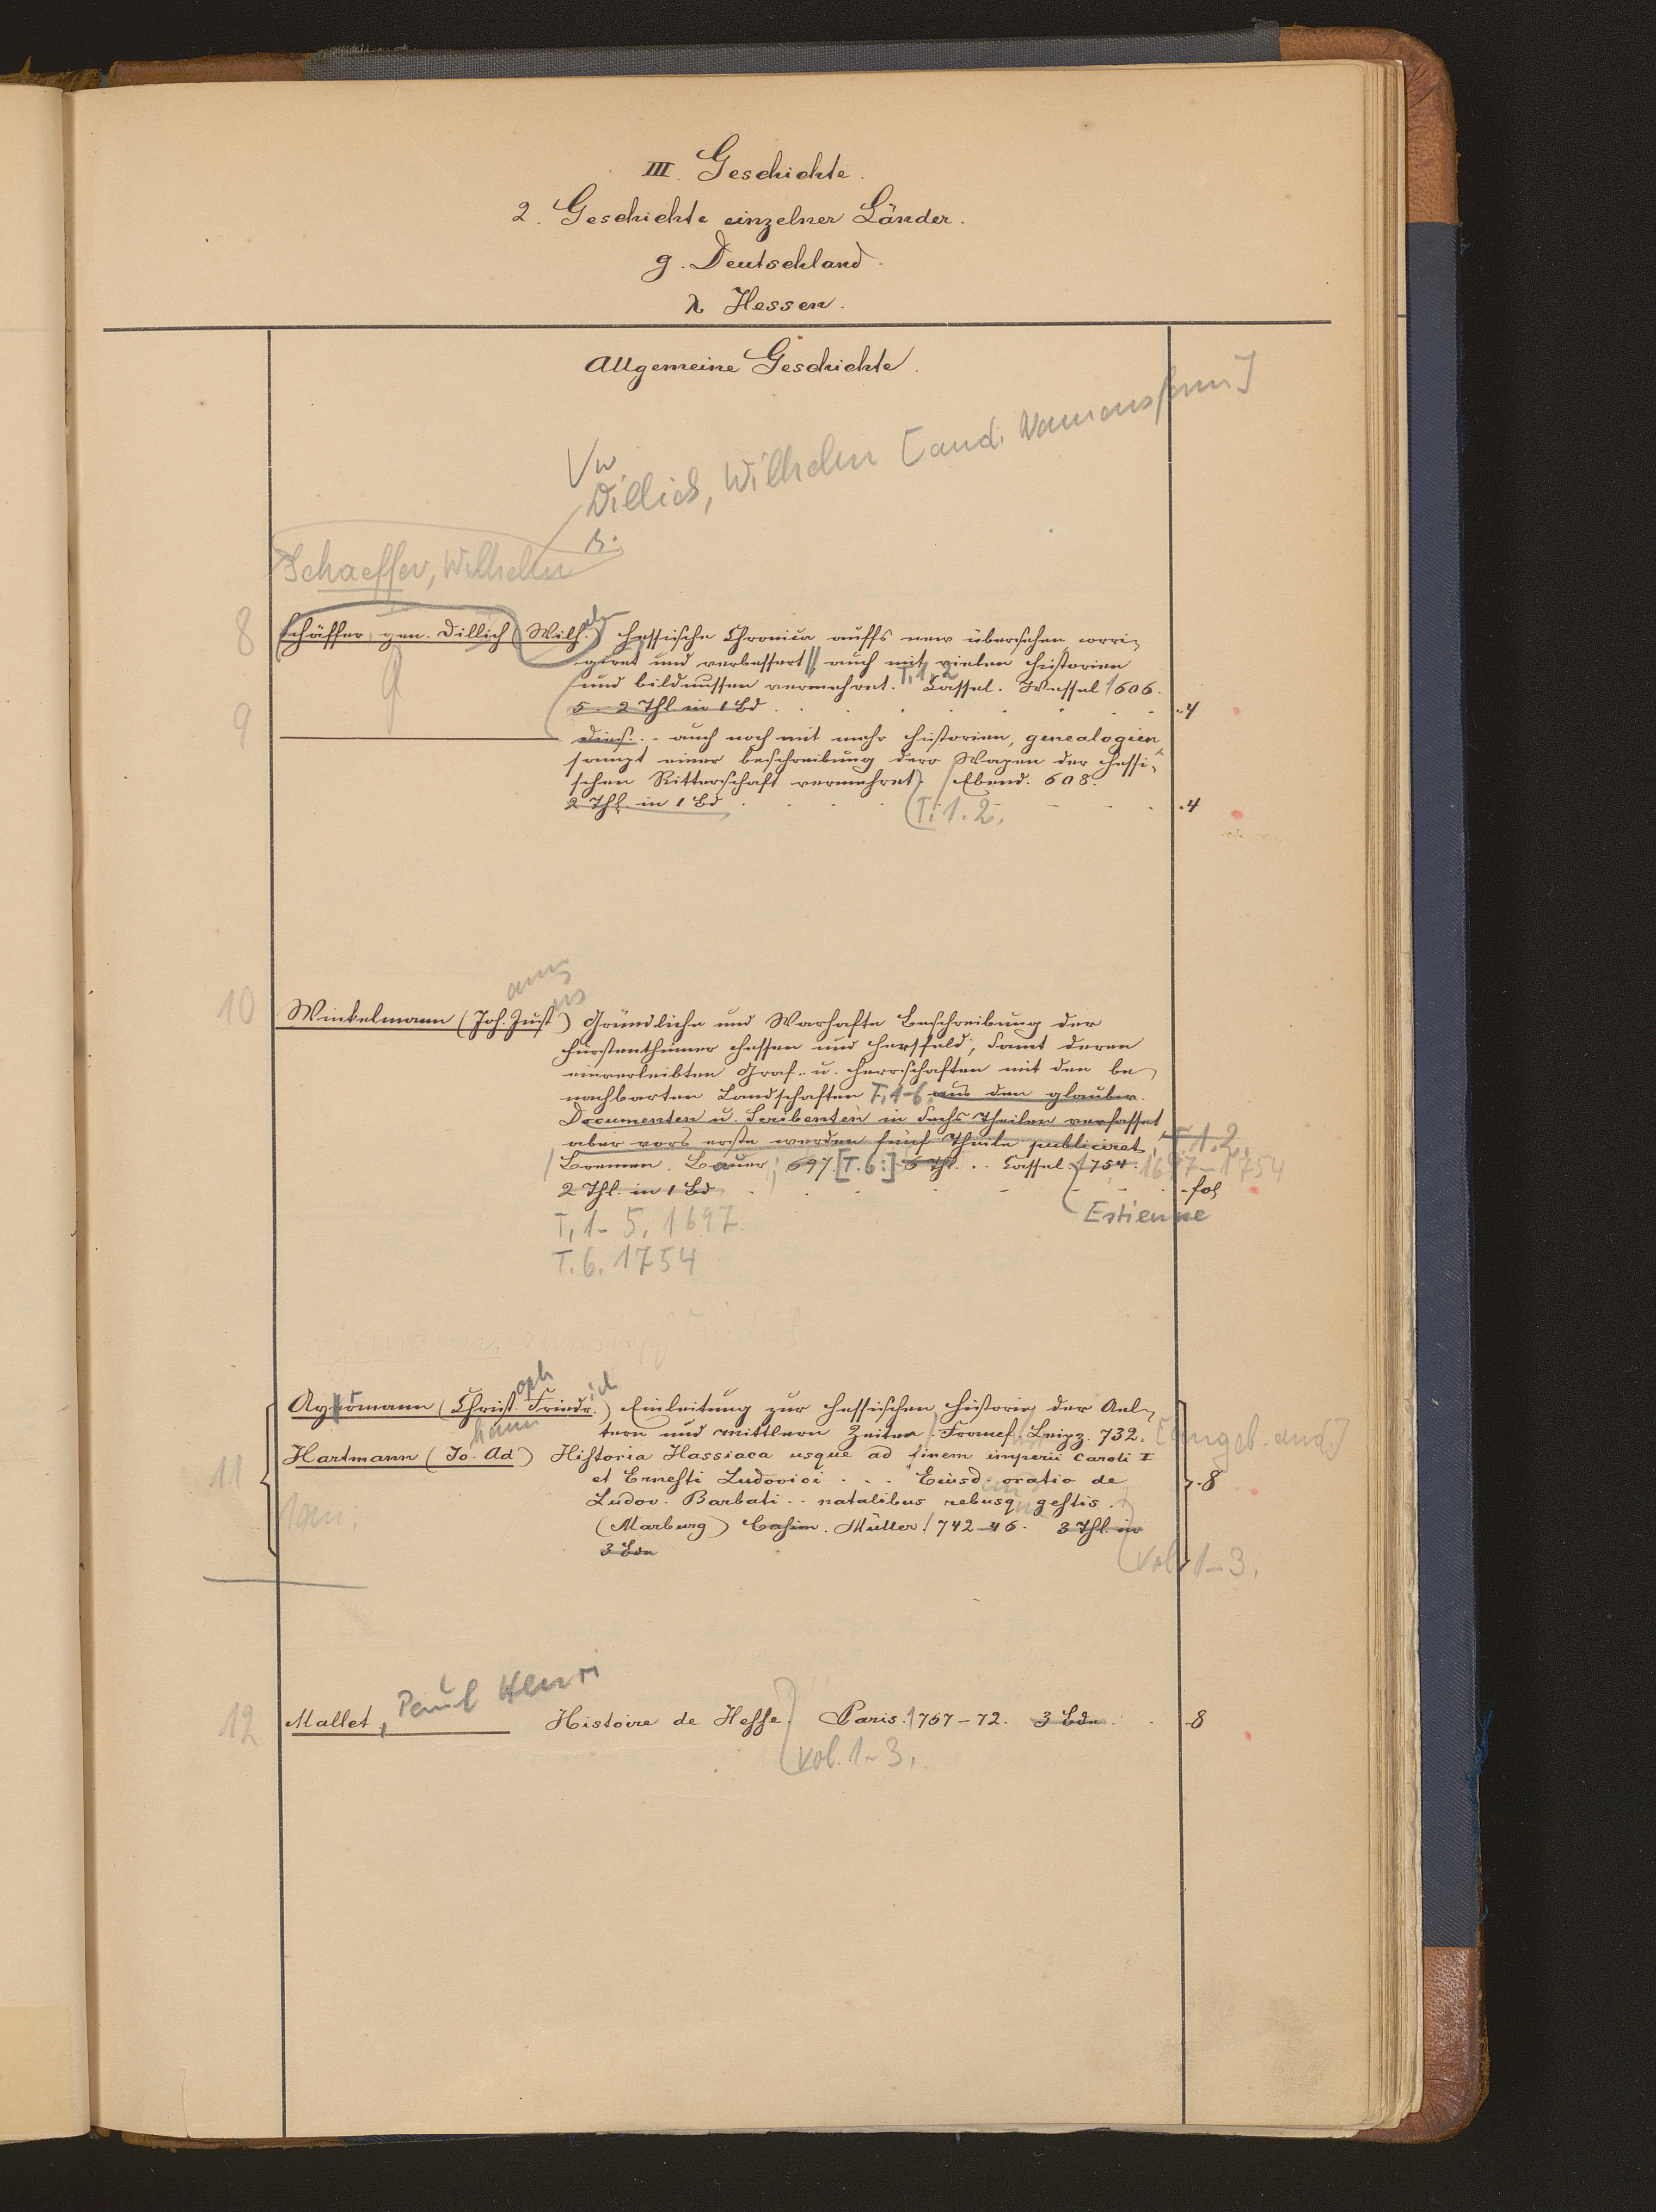 III. Geschichte.
2. Geschichte einzelner Länder.
g. Deutschland.
λ Hessen.
Allgemeine Geschichte.
Vw
Dillich, Wilhelm [and. Namensform]
s.
Schaeffer, Wilhelm
8 Schäffer gen. Dillich (Wilh.) Hessische Chronica auffs new übersehen, corri-
giret und verbessert // auch mit vielen historien
und bildnussen vermehret. T. 1. 2 Cassel. Wessel 1606.
5. 2 Thl in 1 Bd . . . 4
9 Dies. .. auch noch mit mehr historien, genealogien
sampt einer beschreibung derr Wapen der hessi-
schen Ritterschaft vermehret. / Ebend. 608.
2 Thl. in 1 Bd . . . (T. 1. 2. . 4
10 Winkelmann (Joh. Just) Gründliche und Warhafte Beschreibung der
annus
Fürstenthümer Hessen und Hersfeld, samt deren
einverleibten Graf- u. Herrschaften mit den be-
nachbarten Landschaften T. 1-6. aus den glaubw.
Documenten u. Scribenten in Sechs Theilen verfasset
aber vors erste werden fünf Theile publiciret T. 1. 2.
/ Bremen. Bauer; 697 [T. 6:] 6 Thl. .. Cassel. 1754. 1697-1754
2 Thl. in 1 Bd . . . fol
T. 1-5. 1697. Estienne
T. 6. 1754
11 Ayrmann (Christ. Friedr.) Einleitung zur hessischen historie der Ael-
oph ich
tern und mittlern Zeiten. Francf. Leipz. 732. [angeb. and.]
Hartmann (Jo. Ad) Historia Hassiaca usque ad finem imperii Caroli I
hann
et Ernesti Ludovici . . . Eiusd. oratio de 8
Ludov. Barbati .. natalibus rebusq gestis.
(Marburg) Casim. Müller / 742-46. 3 Thl. in
3 Bdn (vol. 1-3.
12 Mallet, Paul Henri Histoire de Hesse. Paris. 1767-72. 3 Bde . . 8
(vol. 1-3.